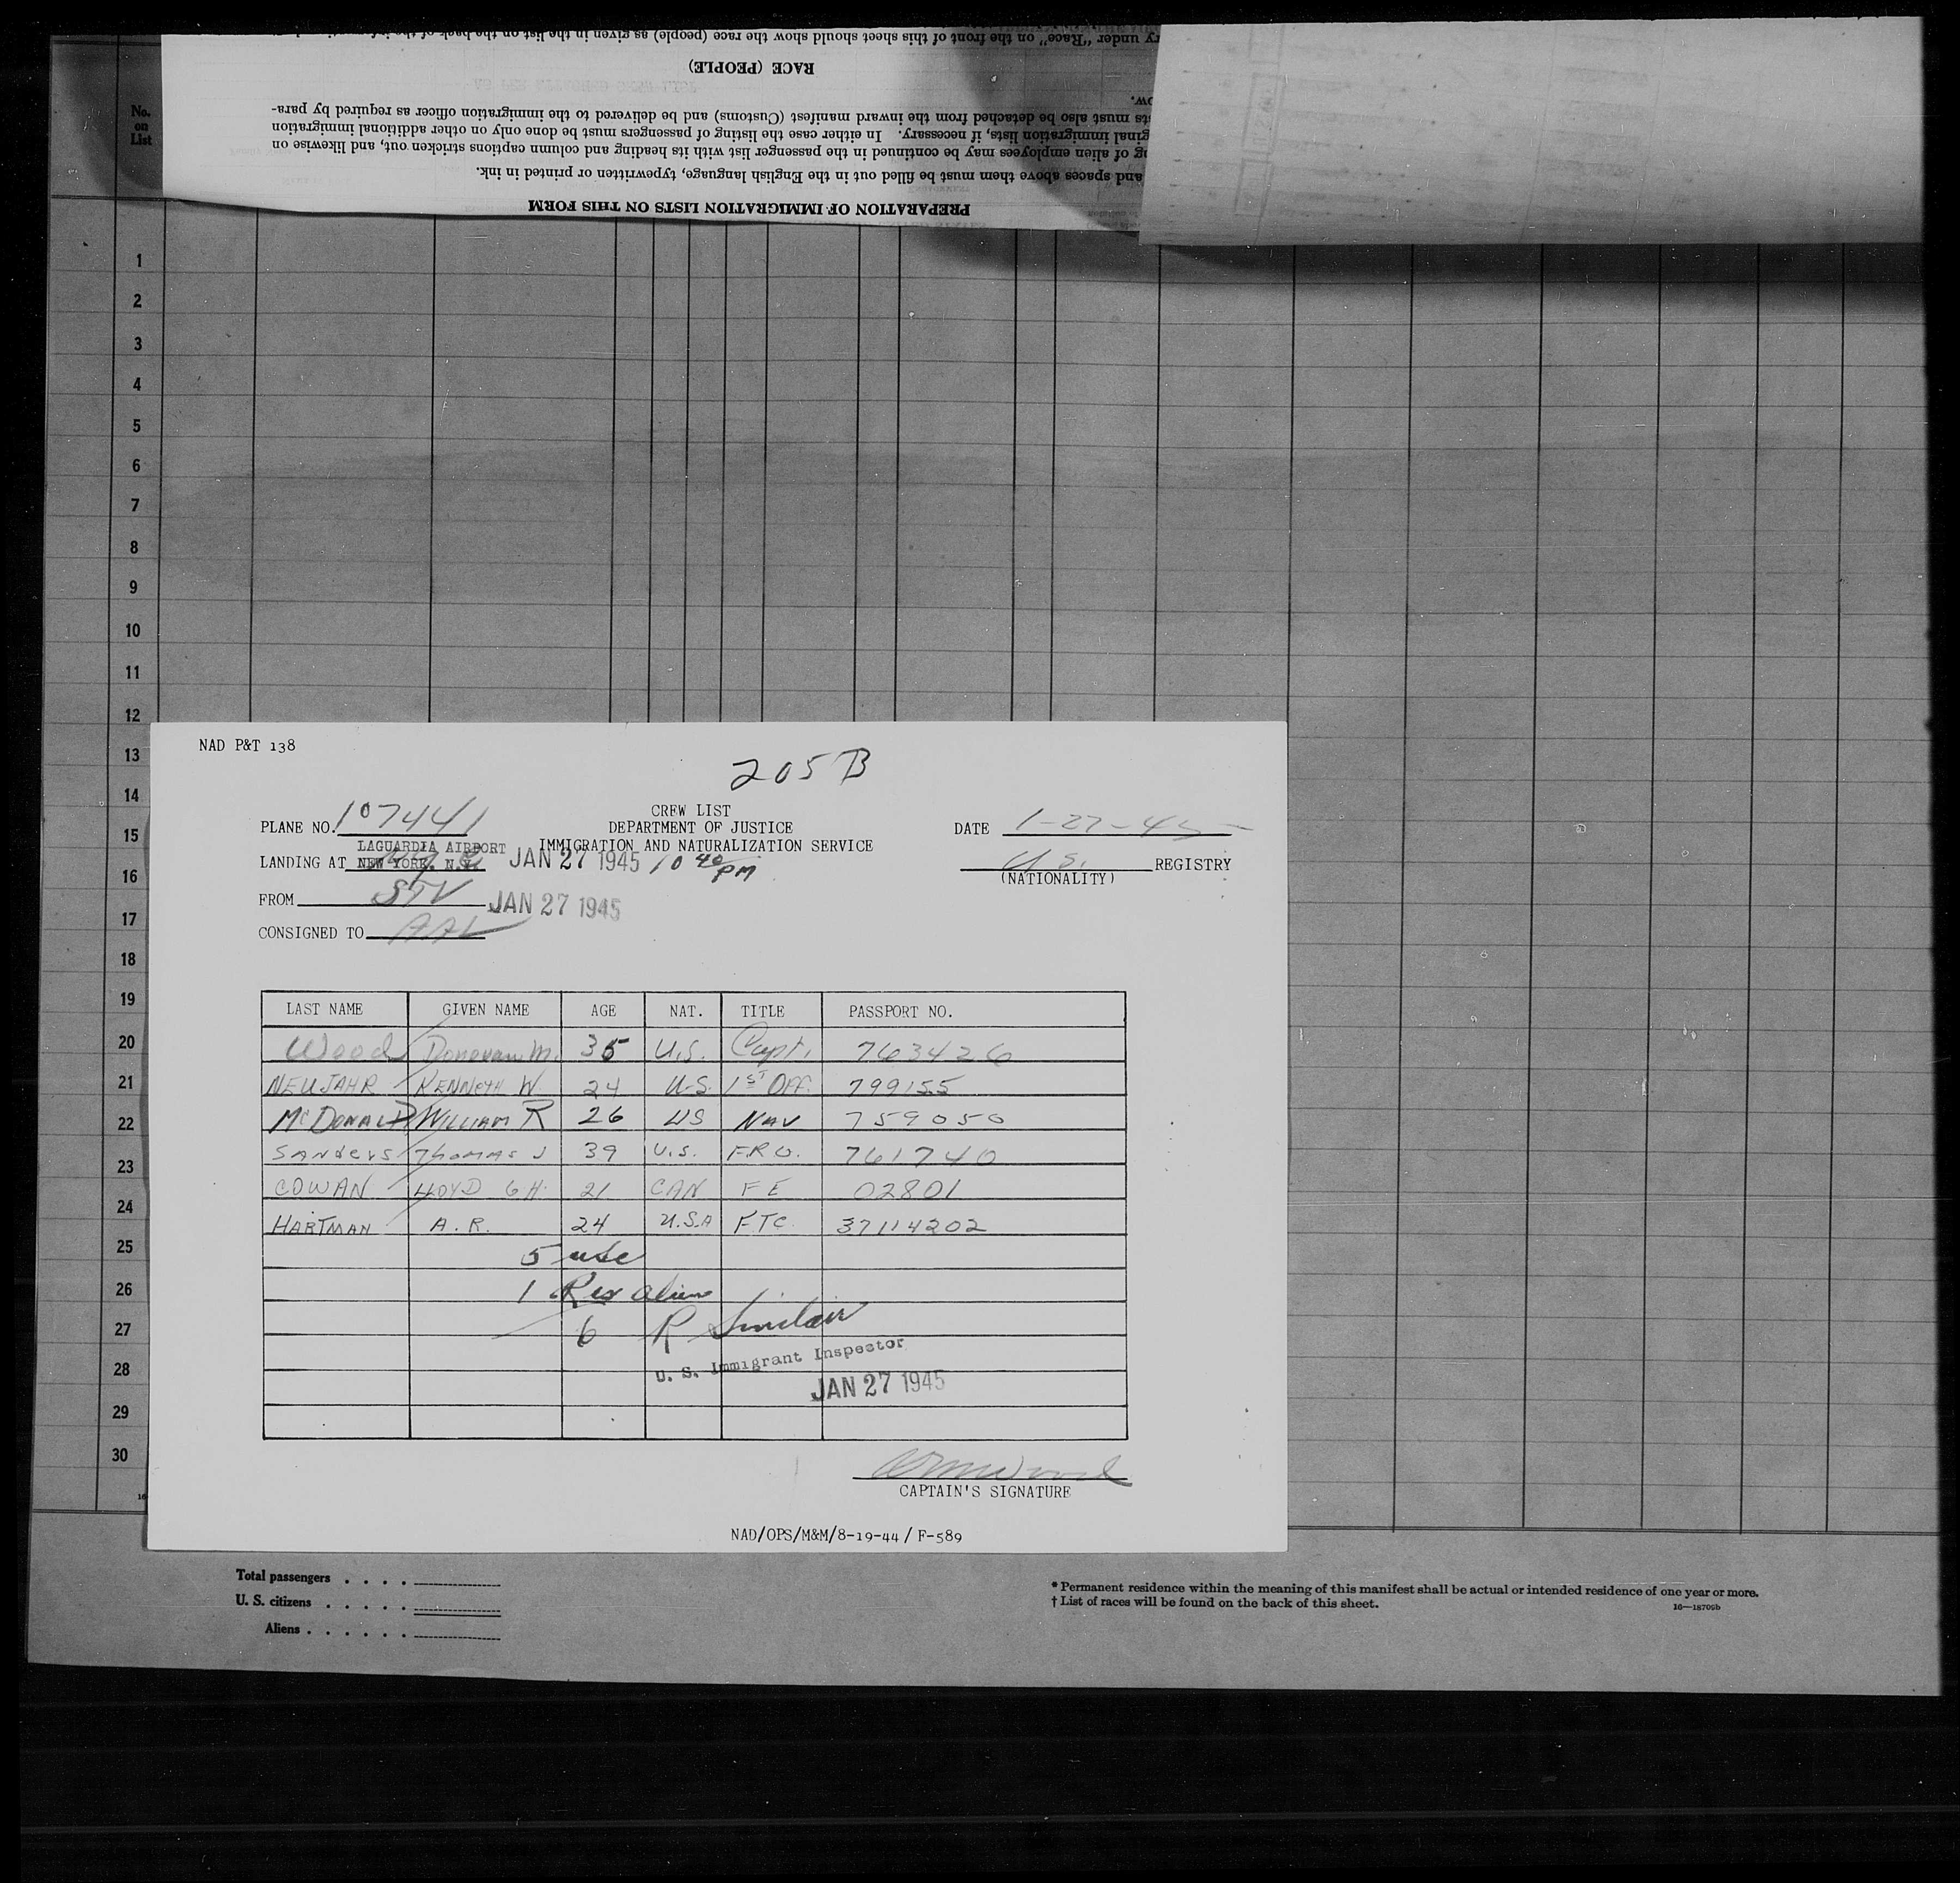 ry under "Race" on the front of this sheet should show the race (people) as given in the list on the back of the
RACE (PEOPLE)
ow.
sts must also be detached from the inward manifest (Customs) and be delivered to the immigration officer as required by para-
ginal immigration lists, if necessary. In either case the listing of passengers must be done only on other additional immigration
ng of alien employees may be continued in the passenger list with its heading and column captions stricken out, and likewise on
and spaces above them must be filled out in the English language, typewritten or printed in ink.
PREPARATION OF IMMIGRATION LISTS ON THIS FORM
No.
on
List
1
2
3
4
5
6
7
8
9
10
11
12
13
14
15
16
17
18
19
20
21
22
23
24
25
26
27
28
29
30
NAD P&T 138
205 B
CREW LIST
PLANE NO. 107441 DEPARTMENT OF JUSTICE DATE 1-27-45
LAGUARDIA AIRPORT IMMIGRATION AND NATURALIZATION SERVICE
LANDING AT NEW YORK, N.Y. JAN 27 1945 10 40 PM U.S. REGISTRY
(NATIONALITY)
FROM STV JAN 27 1945
CONSIGNED TO AAL
LAST NAME GIVEN NAME AGE NAT. TITLE PASSPORT NO.
Wood Donovan M. 35 U.S. Capt. 763426
NEUJAHR KENNETH W. 24 U.S. 1ST OFF. 799155
McDONALD WILLIAM R 26 US NAV 759050
SANDERS THOMAS J 39 U.S. F.R.O. 761740
COWAN LLOYD G.H. 21 CAN F E 02801
HARTMAN A.R. 24 U.S.A FTC. 37114202
5 usc
1 Rex alien
6 R Sinclair
U. S. Immigrant Inspector
JAN 27 1945
CAPTAIN'S SIGNATURE
NAD/OPS/M&M/8-19-44 / F-589
Total passengers . . . .
U. S. citizens . . . . .
Aliens . . . . . .
* Permanent residence within the meaning of this manifest shall be actual or intended residence of one year or more.
† List of races will be found on the back of this sheet.
16—18709b